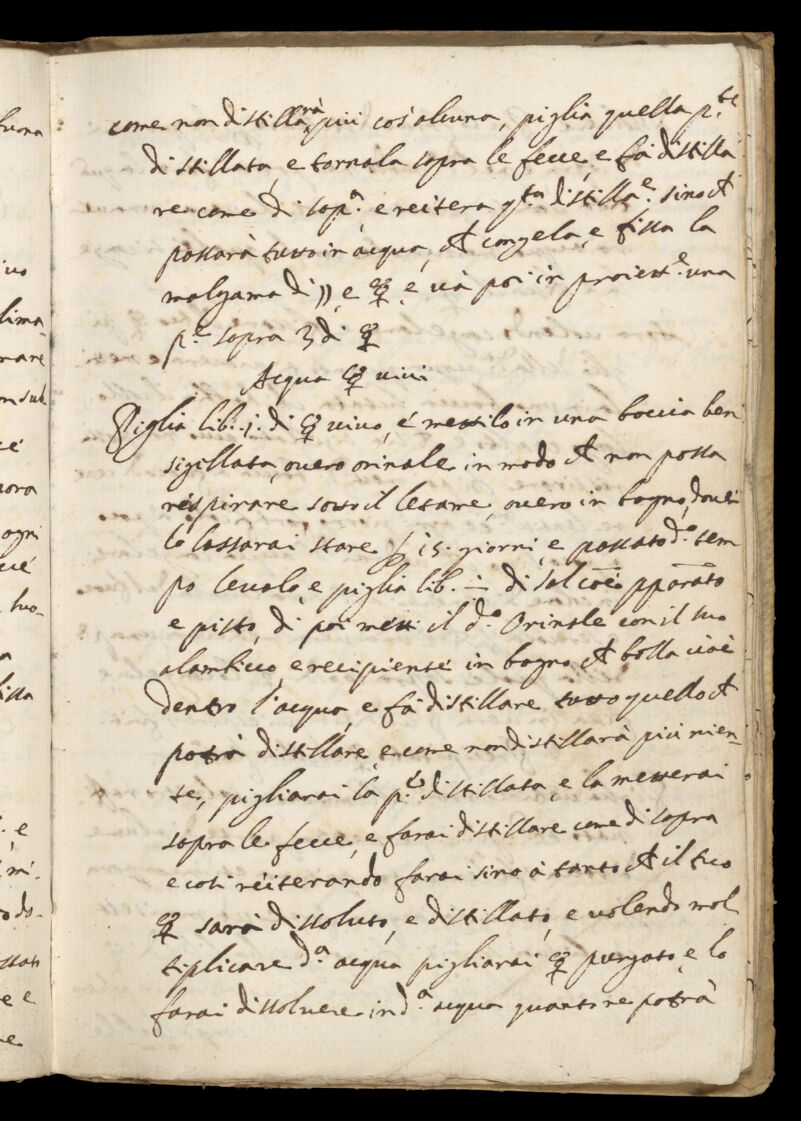 come non distillarà più cos'alcuna, piglia quella p.te
distillata, e tornala sopra le fecce, e fà distilla
re come di sop.a e reitera q.ta distilla.e sino ch
passarà tutto in acqua, ch congela, e fissa la
malgama di ☽, e ☿, e và poi in proiett.e una
p.e sopra 3 di ☿
Acqua ☿ uiui
Piglia lib. j. di ☿ uiuo, e mettilo in una boccia ben
sigillata, ouero orinale in modo ch non possa
respirare sotto il letame, ouero in bagno, doue
lo lassarai stare p 15. giorni, e passato d.o tem
po leualo, e piglia lib. di sal coe pparato
e pisto, di poi metti il d.o Orinale con il suo
alambicco, e recipiente in bagno ch bolla cioè
dentro l'acqua, e fà distillare tutto quello ch
potrà distillare, e come non distillarà più nien-
te, pigliarai la p.te distillata, e la metterai
sopra le fecce, e farai distillare come di sopra
e così reiterando farai sino à tanto ch il tuo
☿ sarà dissoluto, e distillato, e uolendo mol
tiplicare d.a acqua pigliarai ☿ purgato, e lo
farai dissoluere in d.a acqua quanto ne potrà
ogni